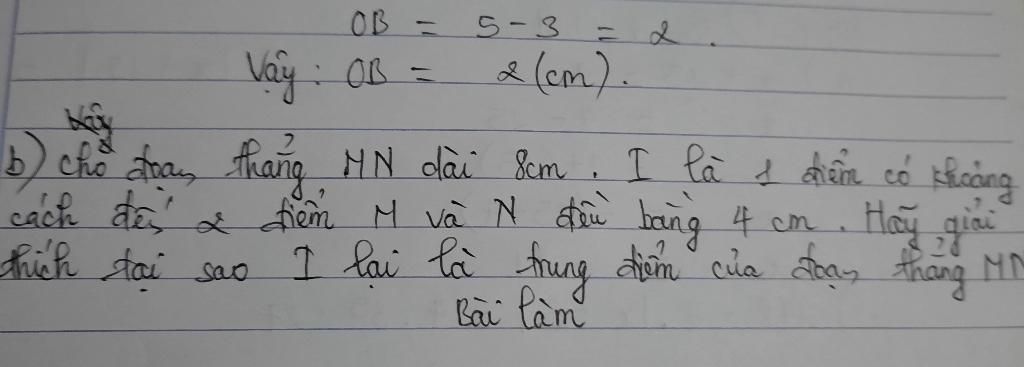 OB = 5 - 3 = 2.
Vậy: OB = 2 (cm).
Vậy
b) Cho đoạn thẳng MN dài 8cm. I là 1 điểm có khoảng
cách đến 2 điểm M và N đều bằng 4 cm. Hãy giải
thích tại sao I lại là trung điểm của đoạn thẳng MN
Bài làm